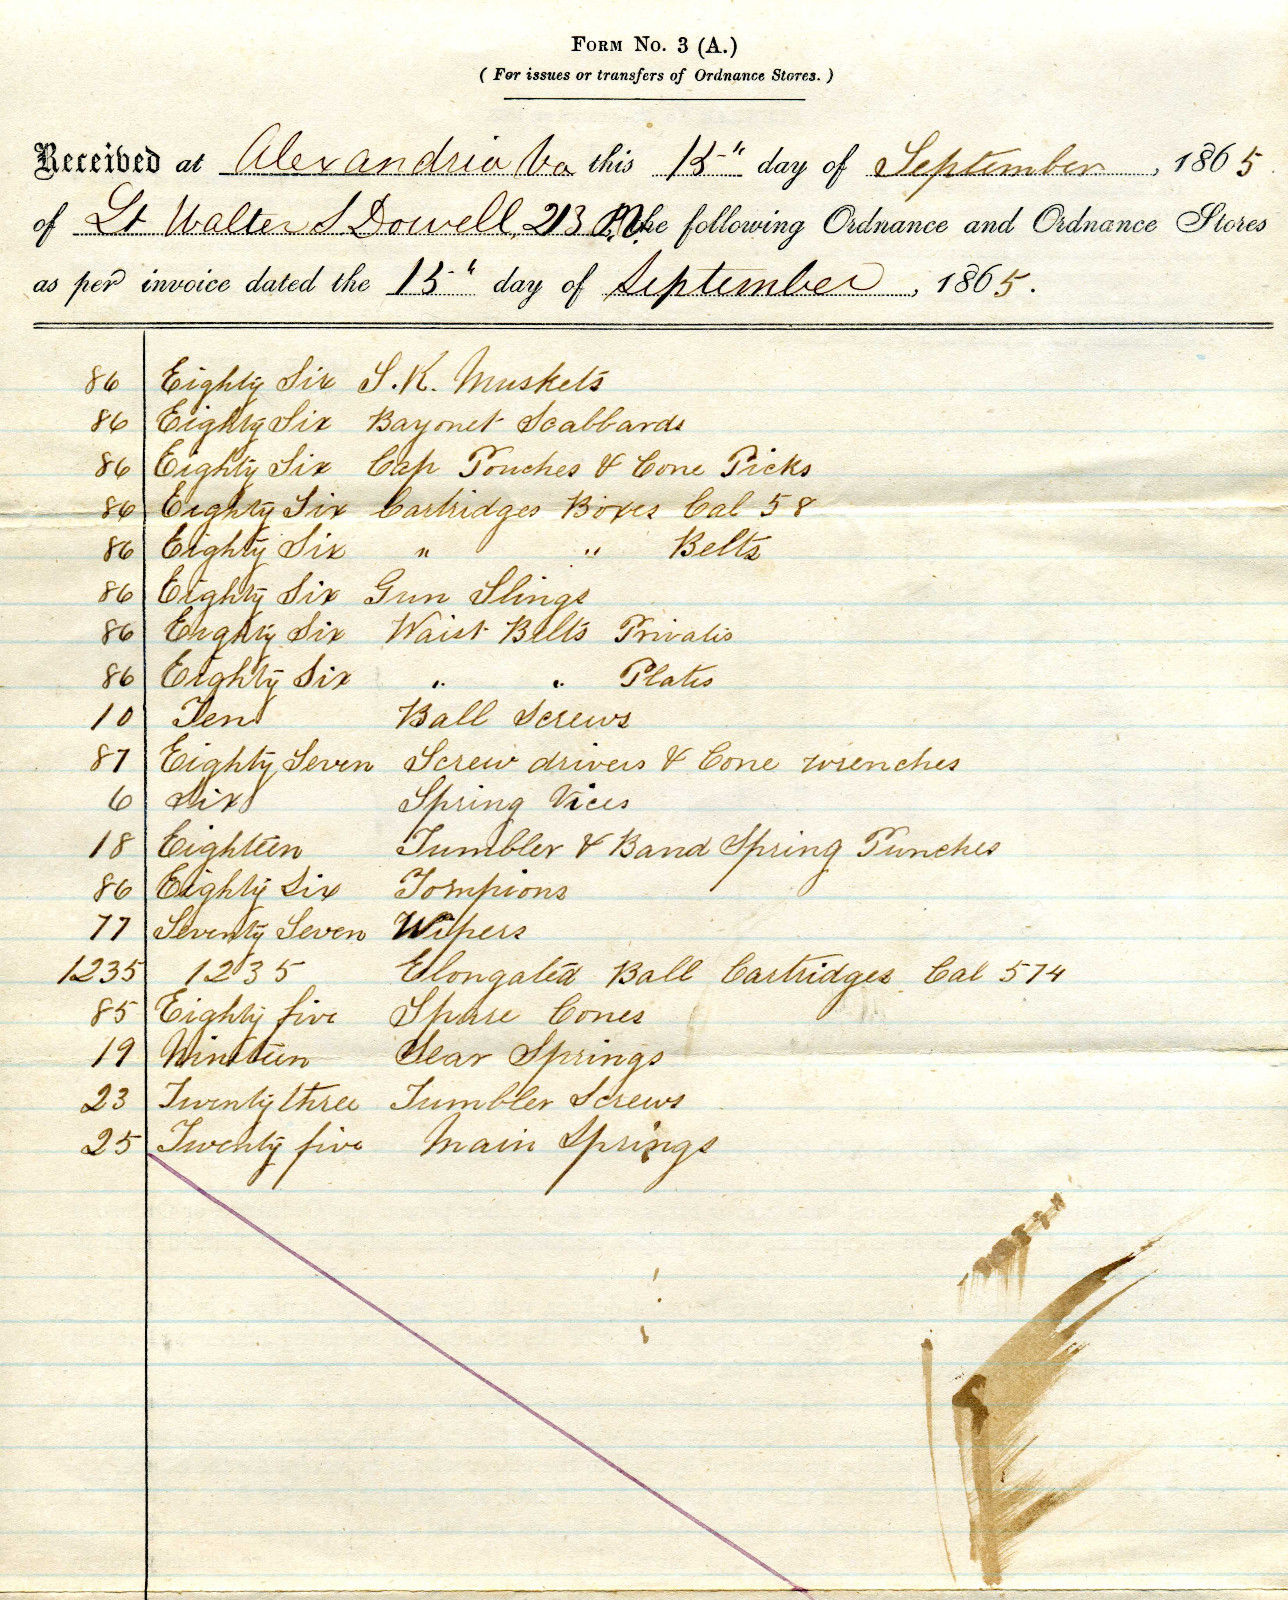 FORM NO. 3 (A.)
( For issues or transfers of Ordnance Stores. )
Received at Alexandria Va this 15" day of September, 1865
of Lt Walter S Dowell, 213 P.V. the following Ordnance and Ordnance Stores
as per invoice dated the 15" day of September, 1865.
86 Eighty Six S.R. Muskets
86 Eighty Six Bayonet Scabbards
86 Eighty Six Cap Pouches & Cone Picks
86 Eighty Six Cartridges Boxes Cal 58
86 Eighty Six " " Belts
86 Eighty Six Gun Slings
86 Eighty Six Waist Belts Privates
86 Eighty Six " " Plates
10 Ten Ball Screws
87 Eighty Seven Screw drivers & Cone wrenches
6 Six Spring Vices
18 Eighteen Tumbler & Band Spring Punches
86 Eighty Six Tompions
77 Seventy Seven Wipers
1235 1235 Elongated Ball Cartridges Cal 574
85 Eighty five Spare Cones
19 Nineteen Sear Springs
23 Twenty three Tumbler Screws
25 Twenty five Main Springs